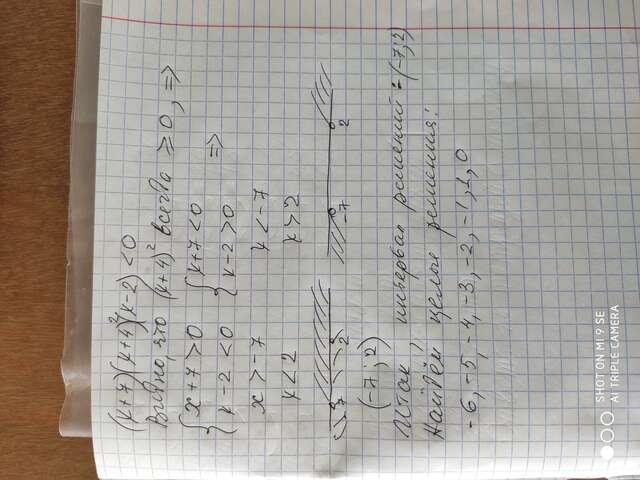 (x+7)(x+4)²(x-2)<0
Видно, что (x+4)² всегда ≥0, =>
{x+7>0 {x+7<0
{x-2<0 {x-2>0 =>
x>-7 x<-7
x<2 x>2
-7 2 -7 2
(-7;2)
Итак, интервал решений: (-7;2)
Найдём целые решения:
-6,-5,-4,-3,-2,-1,1,0
SHOT ON MI 9 SE
AI TRIPLE CAMERA